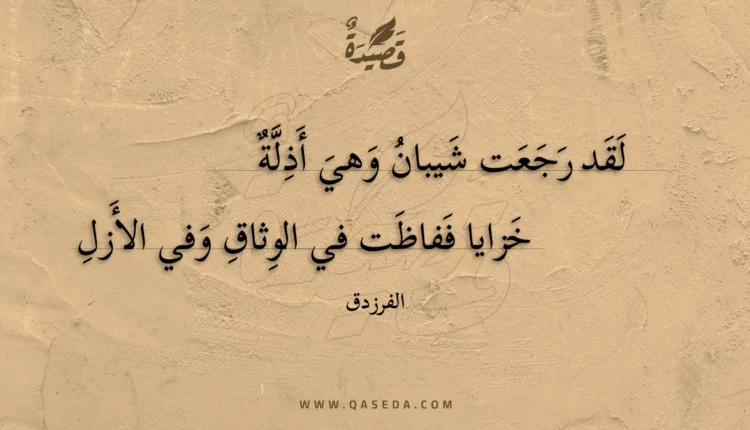 قَصِيدَةٌ
لَقَد رَجَعَت شَيبانُ وَهيَ أَذِلَّةٌ
خَزايا فَفاظَت في الوِثاقِ وَفي الأَزلِ
الفرزدق
WWW.QASEDA.COM